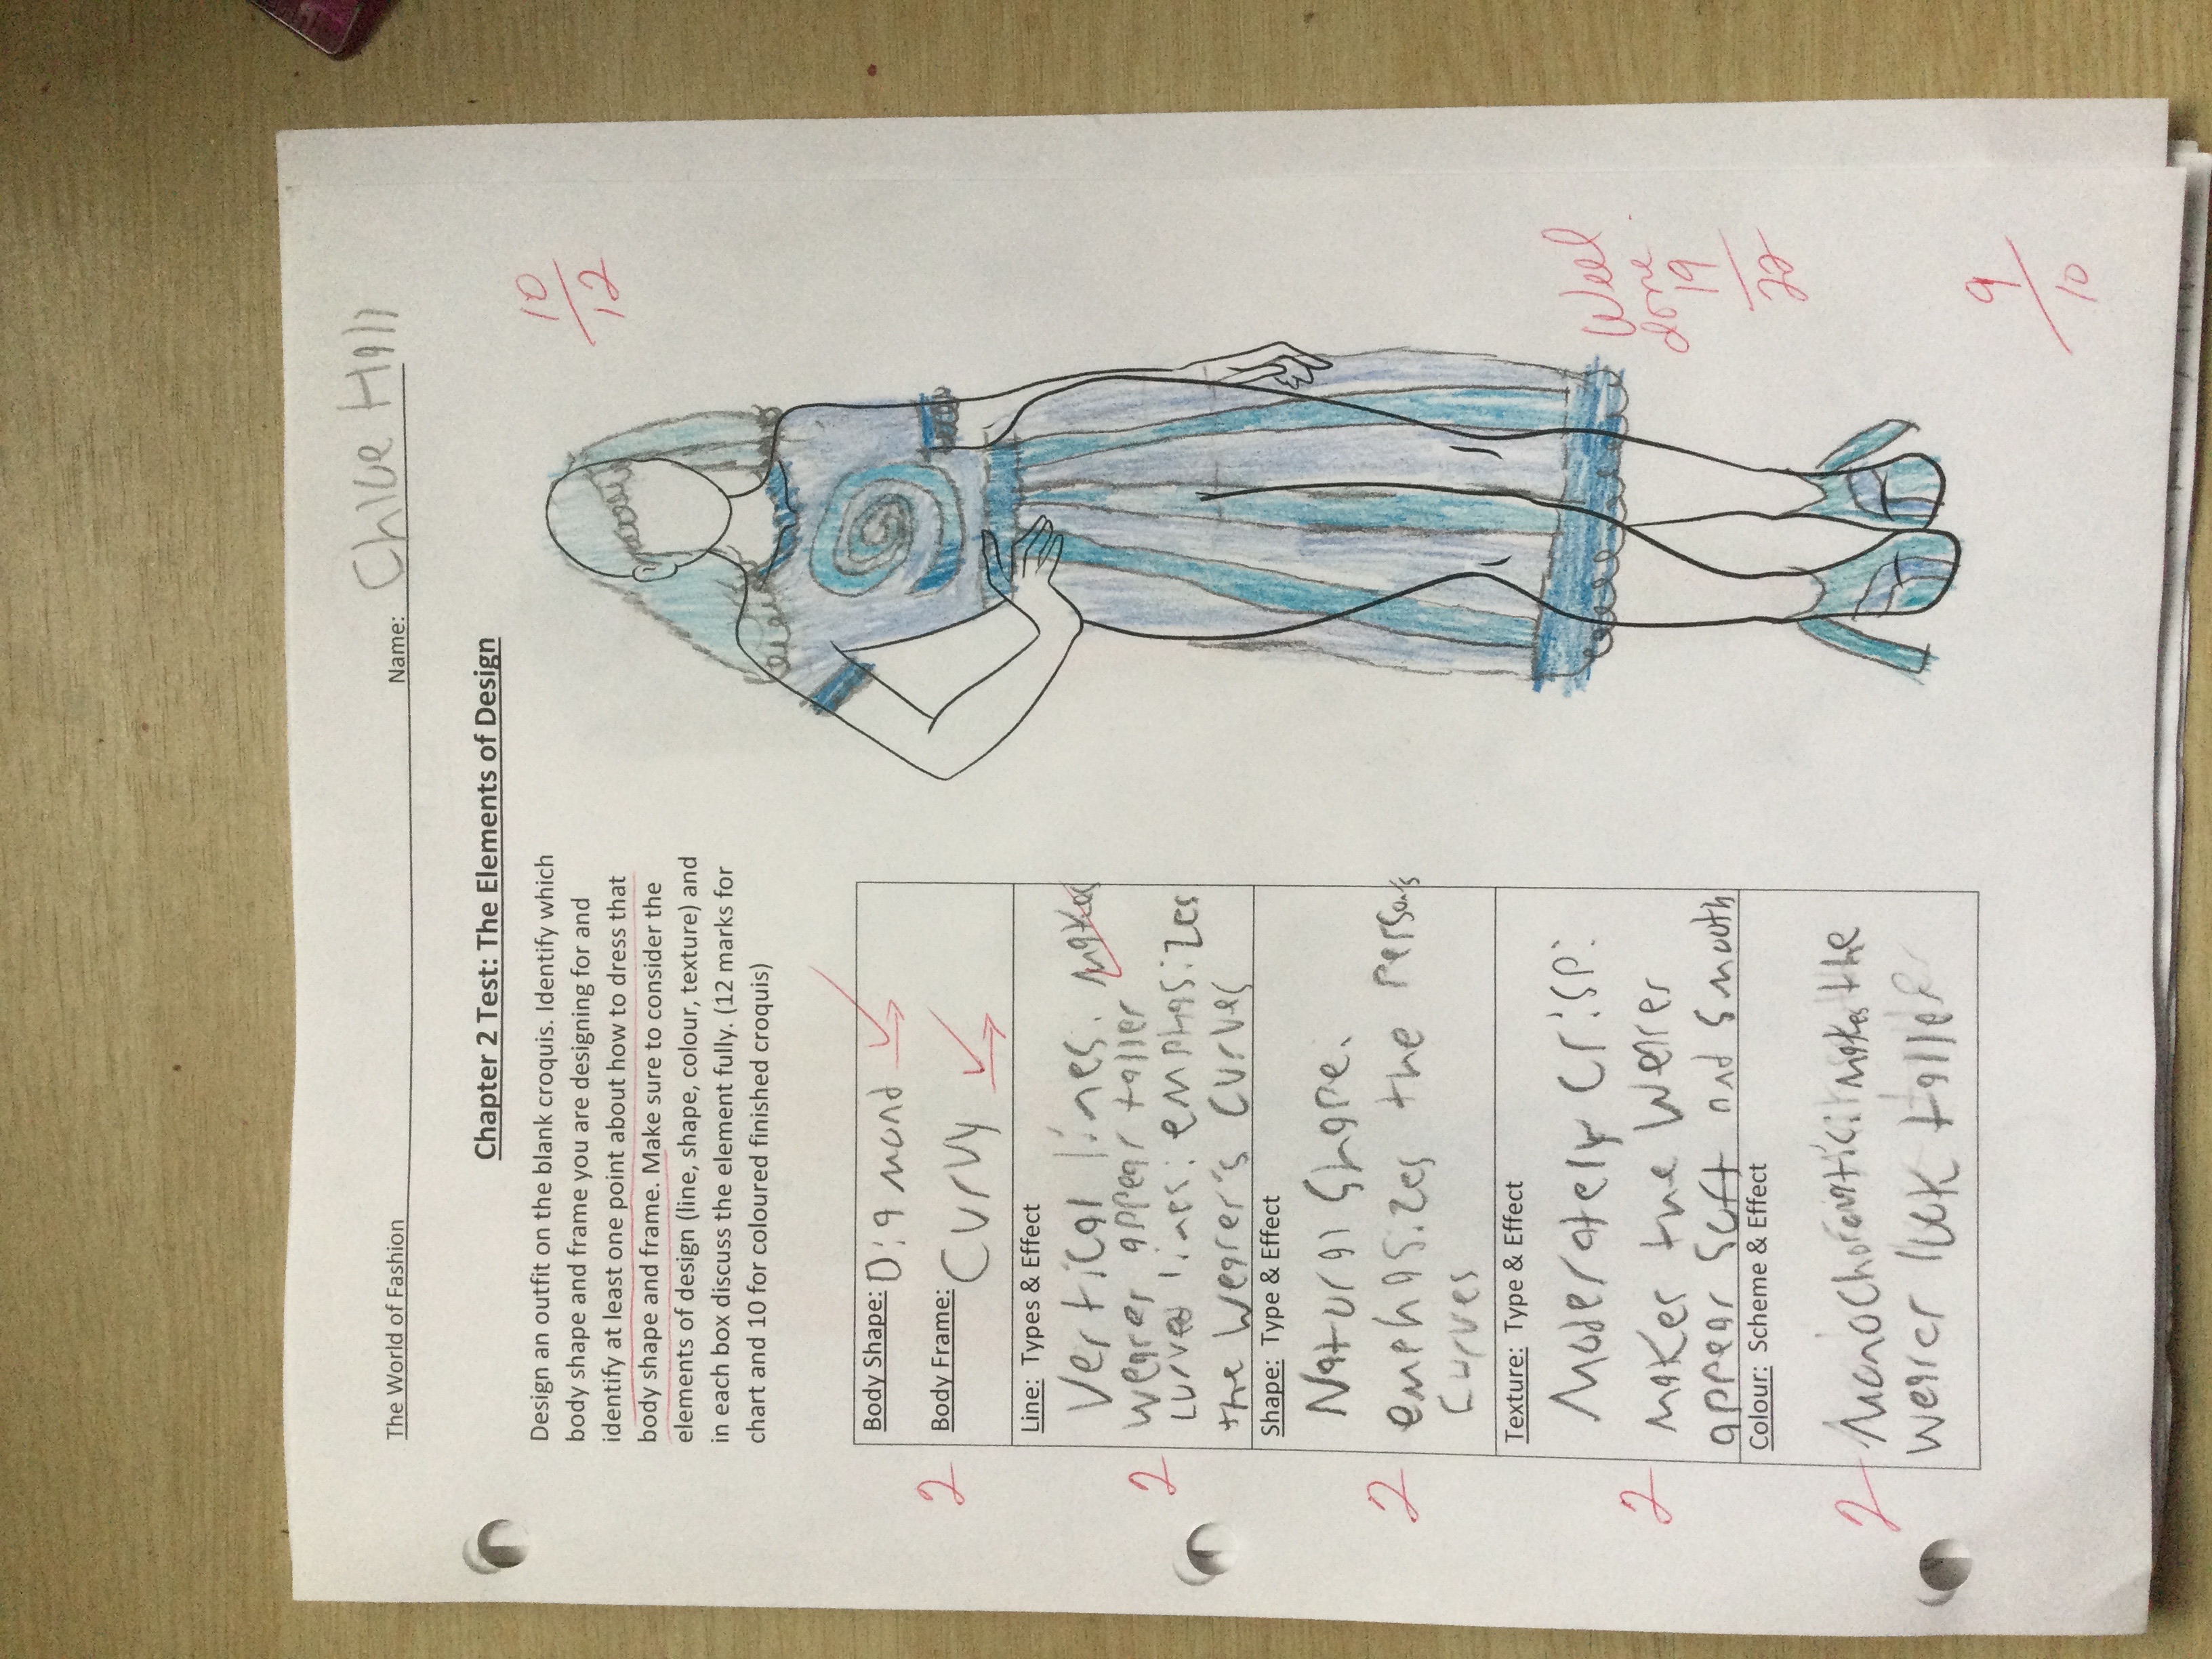 The World of Fashion
Name: Chloe Hall
Chapter 2 Test: The Elements of Design
Design an outfit on the blank croquis. Identify which
body shape and frame you are designing for and
identify at least one point about how to dress that
body shape and frame. Make sure to consider the
elements of design (line, shape, colour, texture) and
in each box discuss the element fully. (12 marks for
chart and 10 for coloured finished croquis)
10/12
Body Shape: Diamond
Body Frame: Curvy
2
Line: Types & Effect
Vertical lines: makes
wearer appear taller
curved lines: emphasizes
the wearer's curves
2
Shape: Type & Effect
Natural Shape.
emphasizes the persons
curves
2
Texture: Type & Effect
Moderately Crisp:
makes the werer
appear soft and smooth
2
Colour: Scheme & Effect
Monochoromatic: makes the
wearer look taller
2
Well
done
19
/
22
9/10